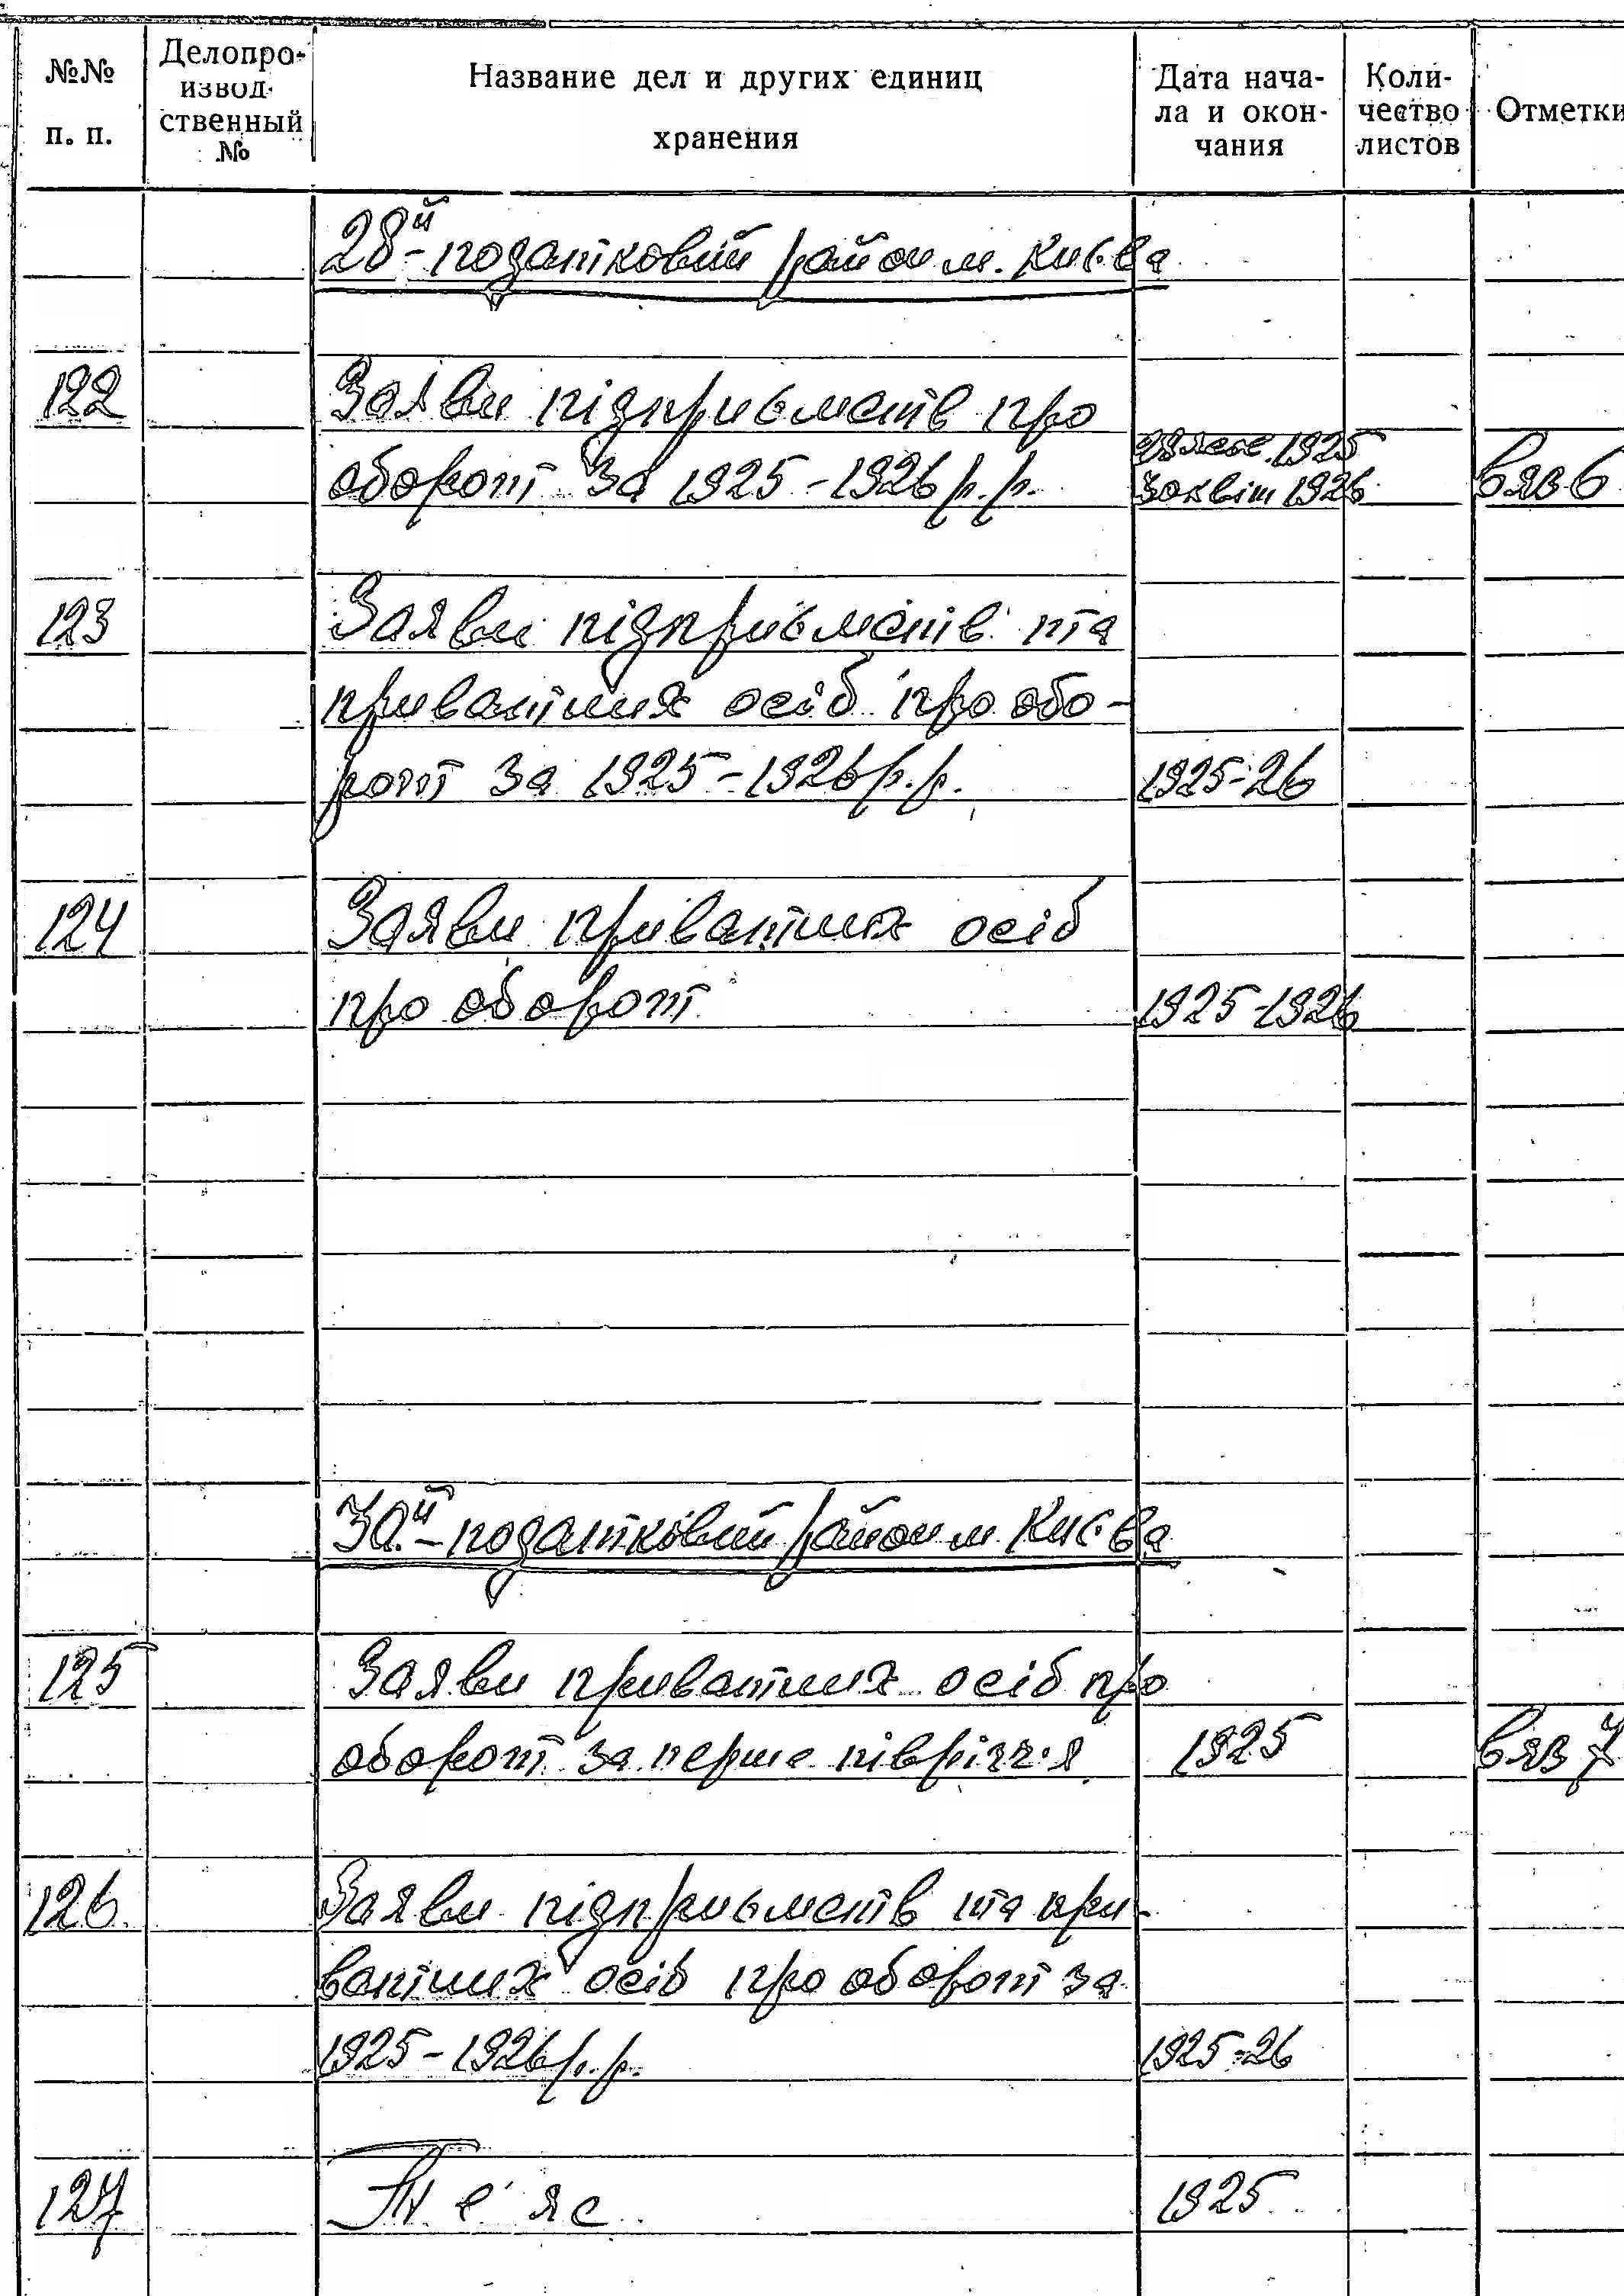 №№ п. п.
Делопро-
извод-
ственный
№
Название дел и других единиц
хранения
Дата нача-
ла и окон-
чания
Коли-
чество
листов
Отметки
28й - податковий район м. Києва
122
Заяви підприємств про
оборот за 1925 - 1926 р.р.
1925
30 квіт 1926
вяз 6
123
Заяви підприємств та
приватних осіб про обо-
рот за 1925 - 1926 р.р.
1925-26
124
Заяви приватних осіб
про оборот
1925-1926
30й - податковий район м. Києва
125
Заяви приватних осіб про
оборот за перше півріччя
1925
вяз 7
126.
Заяви підприємств та при-
ватних осіб про оборот за
1925 - 1926 р.р.
1925-26
127
1925